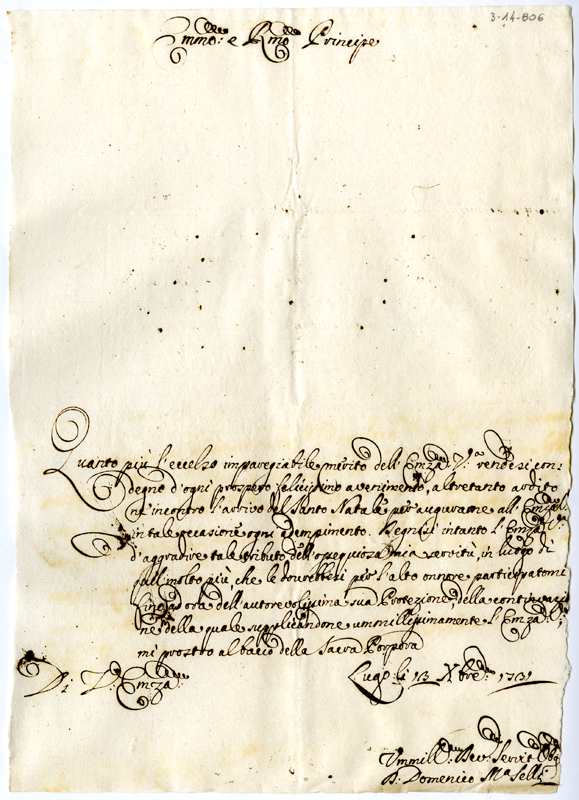 3-14-806
Emmo: e Rmo Principe
Quanto più l'eccelso impareggiabile merito dell'Emza Va: rendesi con-
degno d'ogni prospero felicissimo avenimento, altretanto ardito
ne incontro l'arrivo del Santo Natale per augurarne all'Emza
in tale occasione ogni adempimento. Degnisi intanto l'Emza Va
d'aggradire tale tributo dell'ossequiosa mia servitù, in luogo di
quell molto più, che le dovrebbesi per l'alto onnore participatomi
fin ad ora dell'autorevolissima sua Protezione, della continuazio
ne della quale supplicandone ummilissimamente l'Emza Va:
mi prostro al bacio della Sacra Porpora
Di Va: Emza: Lugo li 13 Xbre: 1731
Ummill: Dev: Servit Obg
D. Domenico Ma Selli